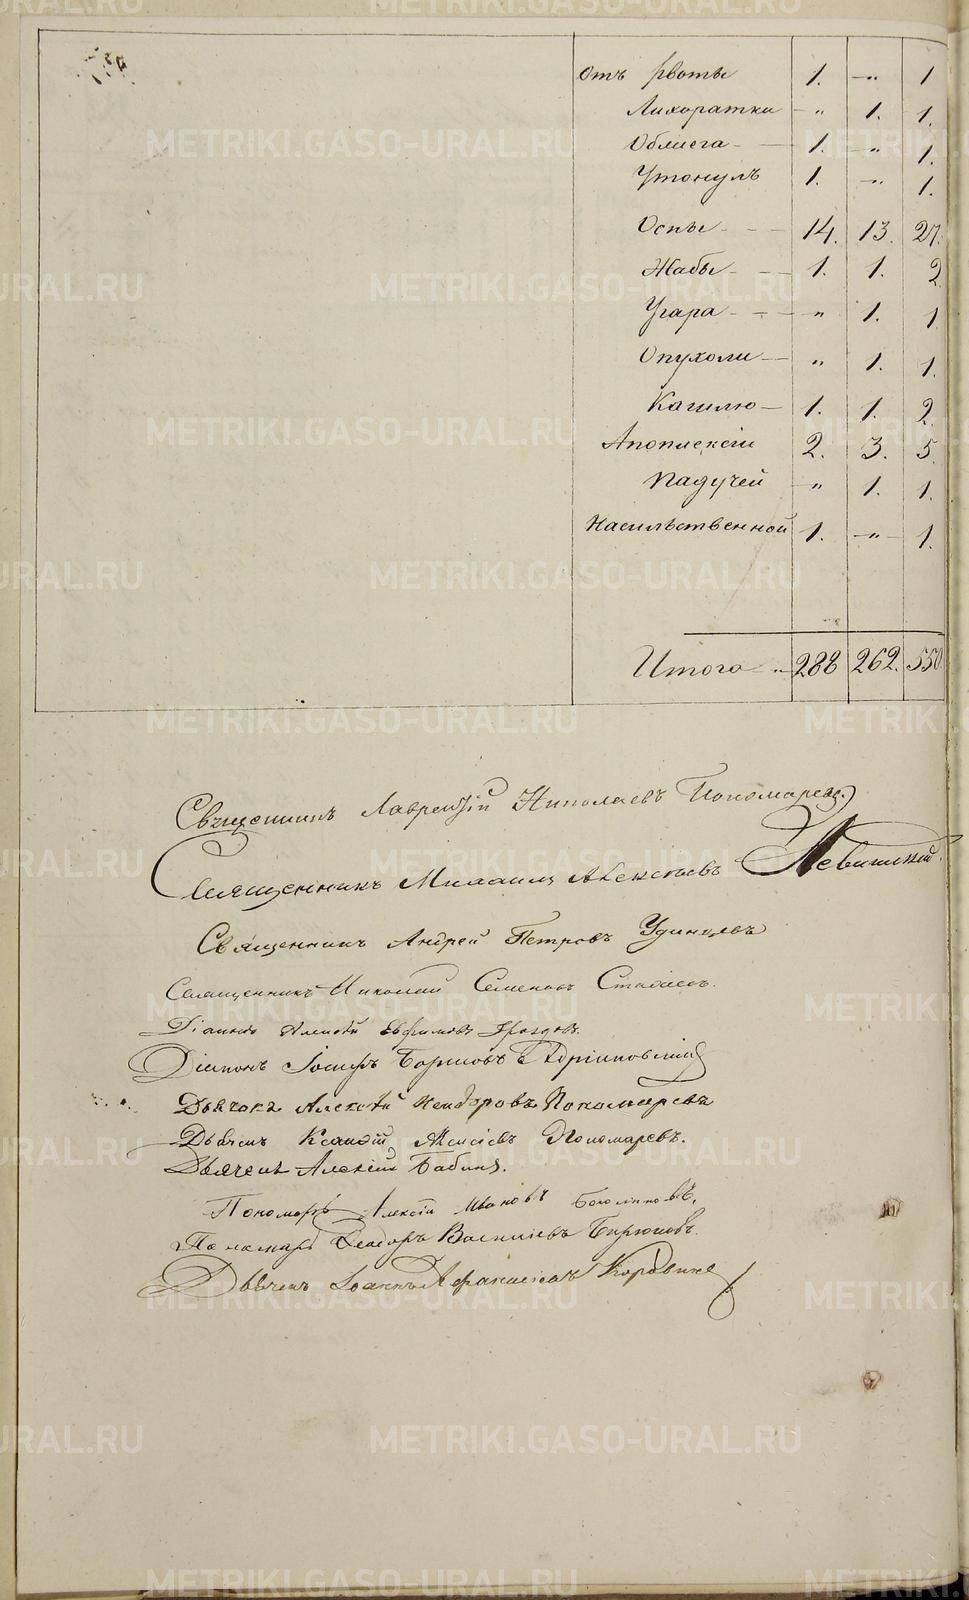 Отъ рвоты 1. —„ 1
Лихоратки — „ 1. 1.
1. „ 1.
Утонулъ 1. —„ 1.
Оспы - - — 14. 13. 27.
Жабы - — 1. 1. 2
Угара - — „ 1. 1
Опухоли — „ 1. 1.
Кашлю — 1. 1. 2.
Апоплексіи 2. 3. 5.
Падучей „ 1. 1.
Насильственной 1. —„— 1.
Итого 288 262. 550
Священникъ Лаврентій Николаевъ Пономаревъ
Священникъ Михаилъ Алексѣевъ Левитскій.
Священникъ Андрей Петровъ Удинцовъ
Священникъ Николай Семеновъ
Діаконъ Алексѣй Евфимовъ
Діаконъ Іосифъ Борисовъ
Дьячокъ Алексѣй Пономаревъ
Дьячекъ Моисіевъ Пономаревъ.
Дьячекъ Алексій Бабинъ.
Пономарь Алексій Ивановъ
Пономарь Ѳеодоръ Василіевъ Бирюковъ.
Дьячекъ Іоаннъ Афанасіевъ Коровинъ
METRIKI.GASO-URAL.RU